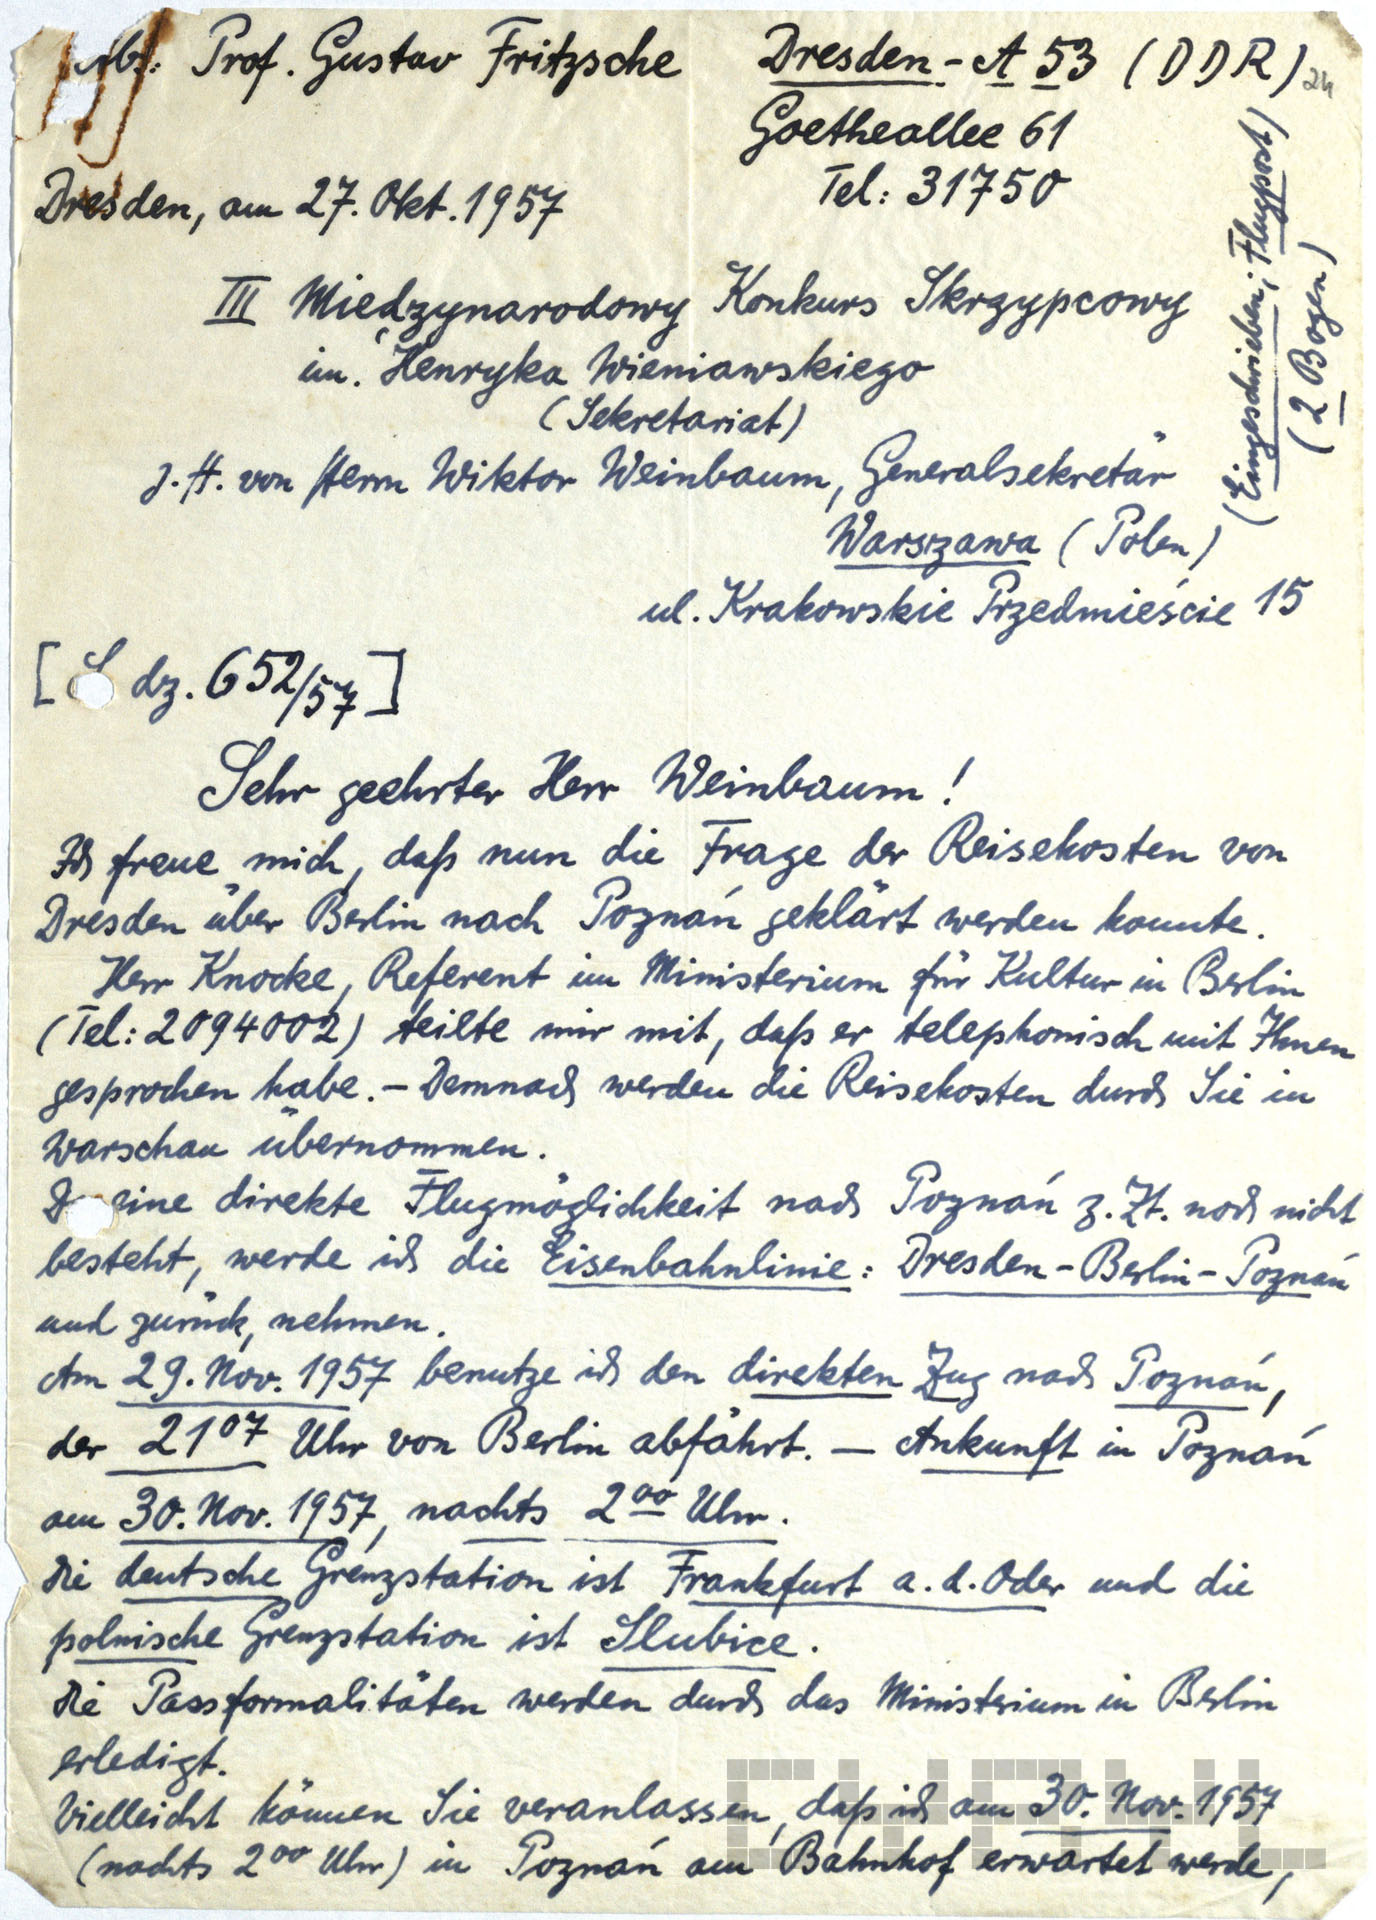 Abs.: Prof. Gustav Fritzsche Dresden-A 53 (DDR)
24
Goetheallee 61
Tel: 31750
Dresden, am 27. Okt. 1957
(Eingeschrieben, Flugpost)
(2 Bogen)
III Międzynarodowy Konkurs Skrzypcowy
im. Henryka Wieniawskiego
(Sekretariat)
z. H. von Herrn Wiktor Weinbaum, Generalsekretär
Warszawa (Polen)
ul. Krakowskie Przedmieście 15
[ dz. 652/57 ]
Sehr geehrter Herr Weinbaum!
Ich freue mich, daß nun die Frage der Reisekosten von
Dresden über Berlin nach Poznań geklärt werden konnte.
Herr Knocke, Referent im Ministerium für Kultur in Berlin
(Tel: 2094002) teilte mir mit, daß er telephonisch mit Ihnen
gesprochen habe. – Demnach werden die Reisekosten durch Sie in
Warschau übernommen.
Da eine direkte Flugmöglichkeit nach Poznań z. Zt. noch nicht
besteht, werde ich die Eisenbahnlinie: Dresden-Berlin-Poznań
und zurück, nehmen.
Am 29. Nov. 1957 benutze ich den direkten Zug nach Poznań,
der 21⁰⁷ Uhr von Berlin abfährt. – Ankunft in Poznań
am 30. Nov. 1957, nachts 2⁰⁰ Uhr.
Die deutsche Grenzstation ist Frankfurt a. d. Oder und die
polnische Grenzstation ist Slubice.
Die Passformalitäten werden durch das Ministerium in Berlin
erledigt.
Vielleicht können Sie veranlassen, daß ich am 30. Nov. 1957
(nachts 2⁰⁰ Uhr) in Poznań am Bahnhof erwartet werde,